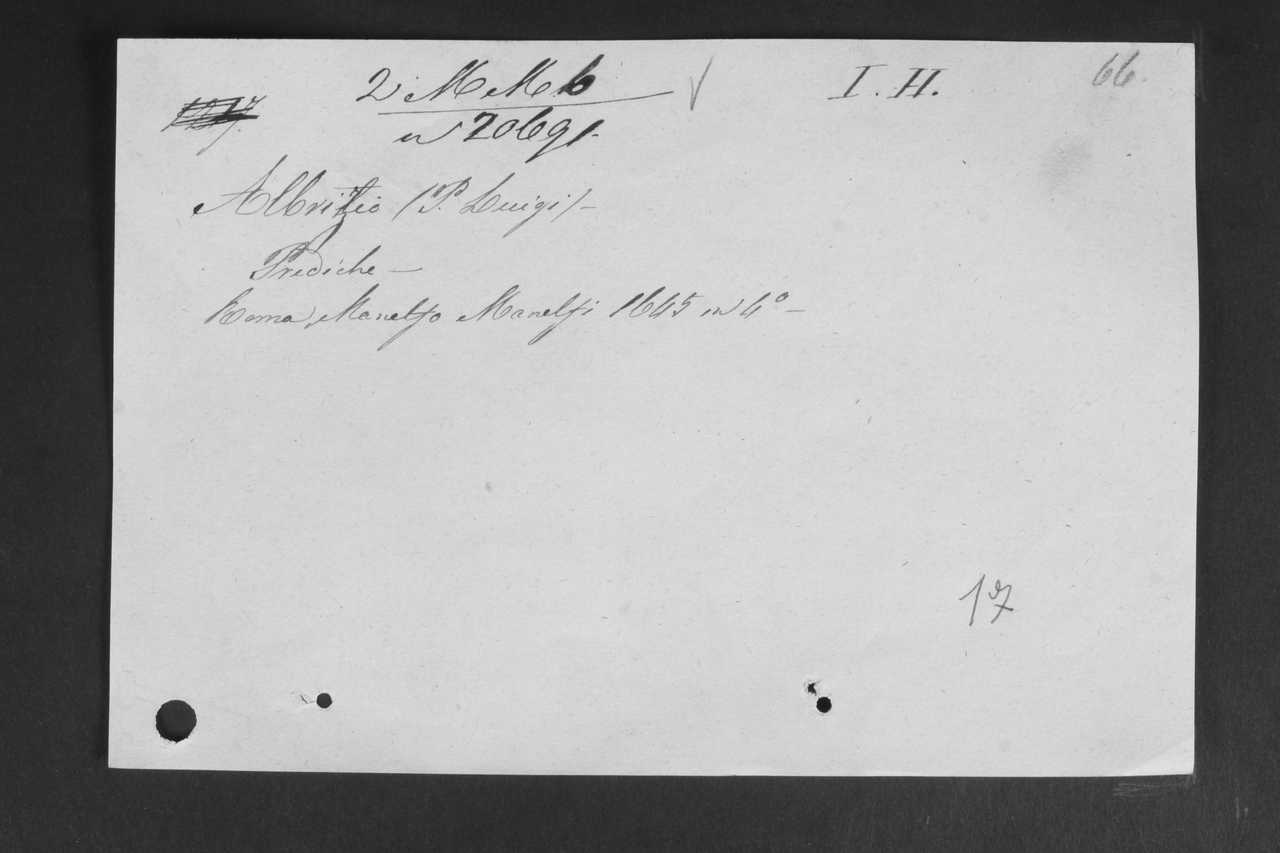 2 M M b I. H. 66.
n 20691-
Albrizio (P. Luigi) -
Prediche -
Roma, Manelfo Manelfi 1645 in 4° -
17